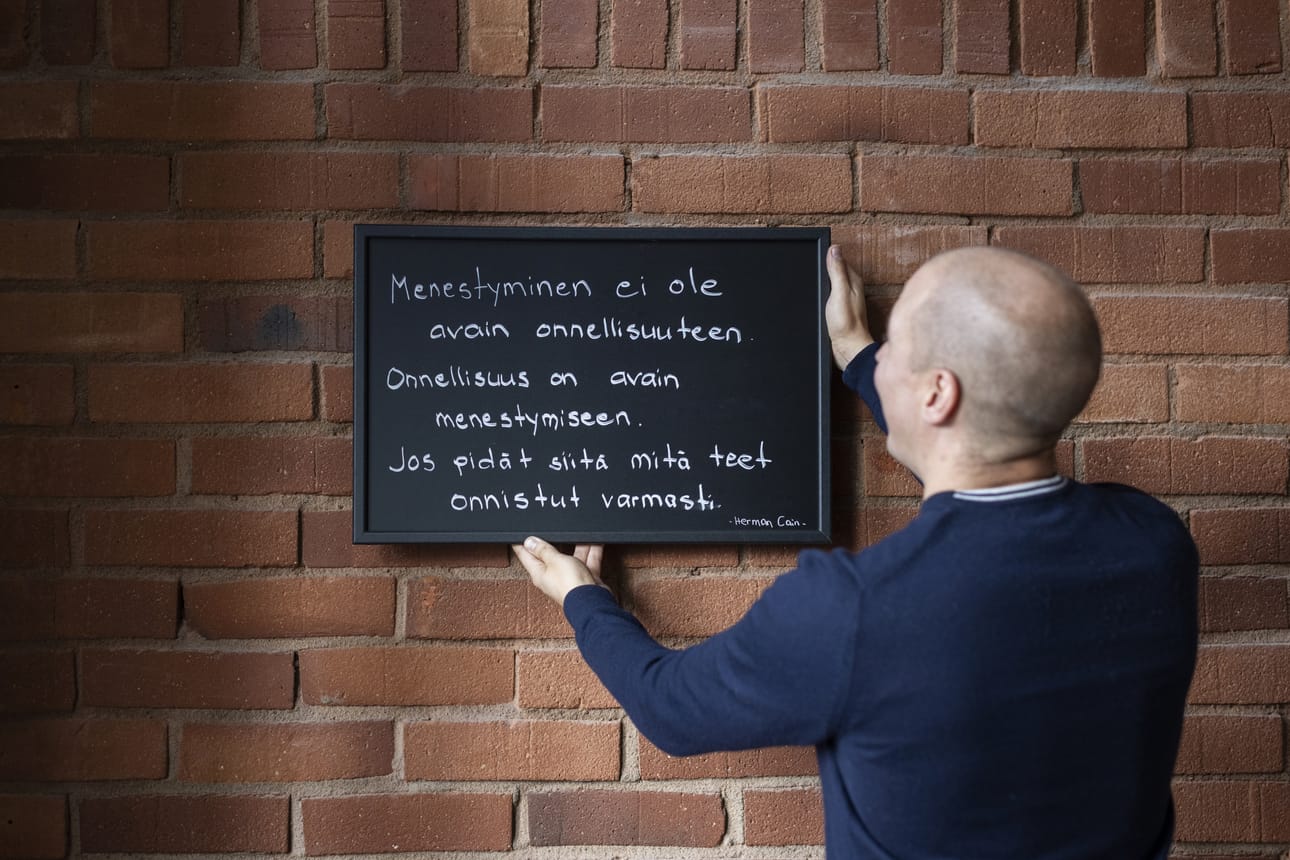 Menestyminen ei ole
avain onnellisuuteen.
Onnellisuus on avain
menestymiseen.
Jos pidät siitä mitä teet
onnistut varmasti.
- Herman Cain -